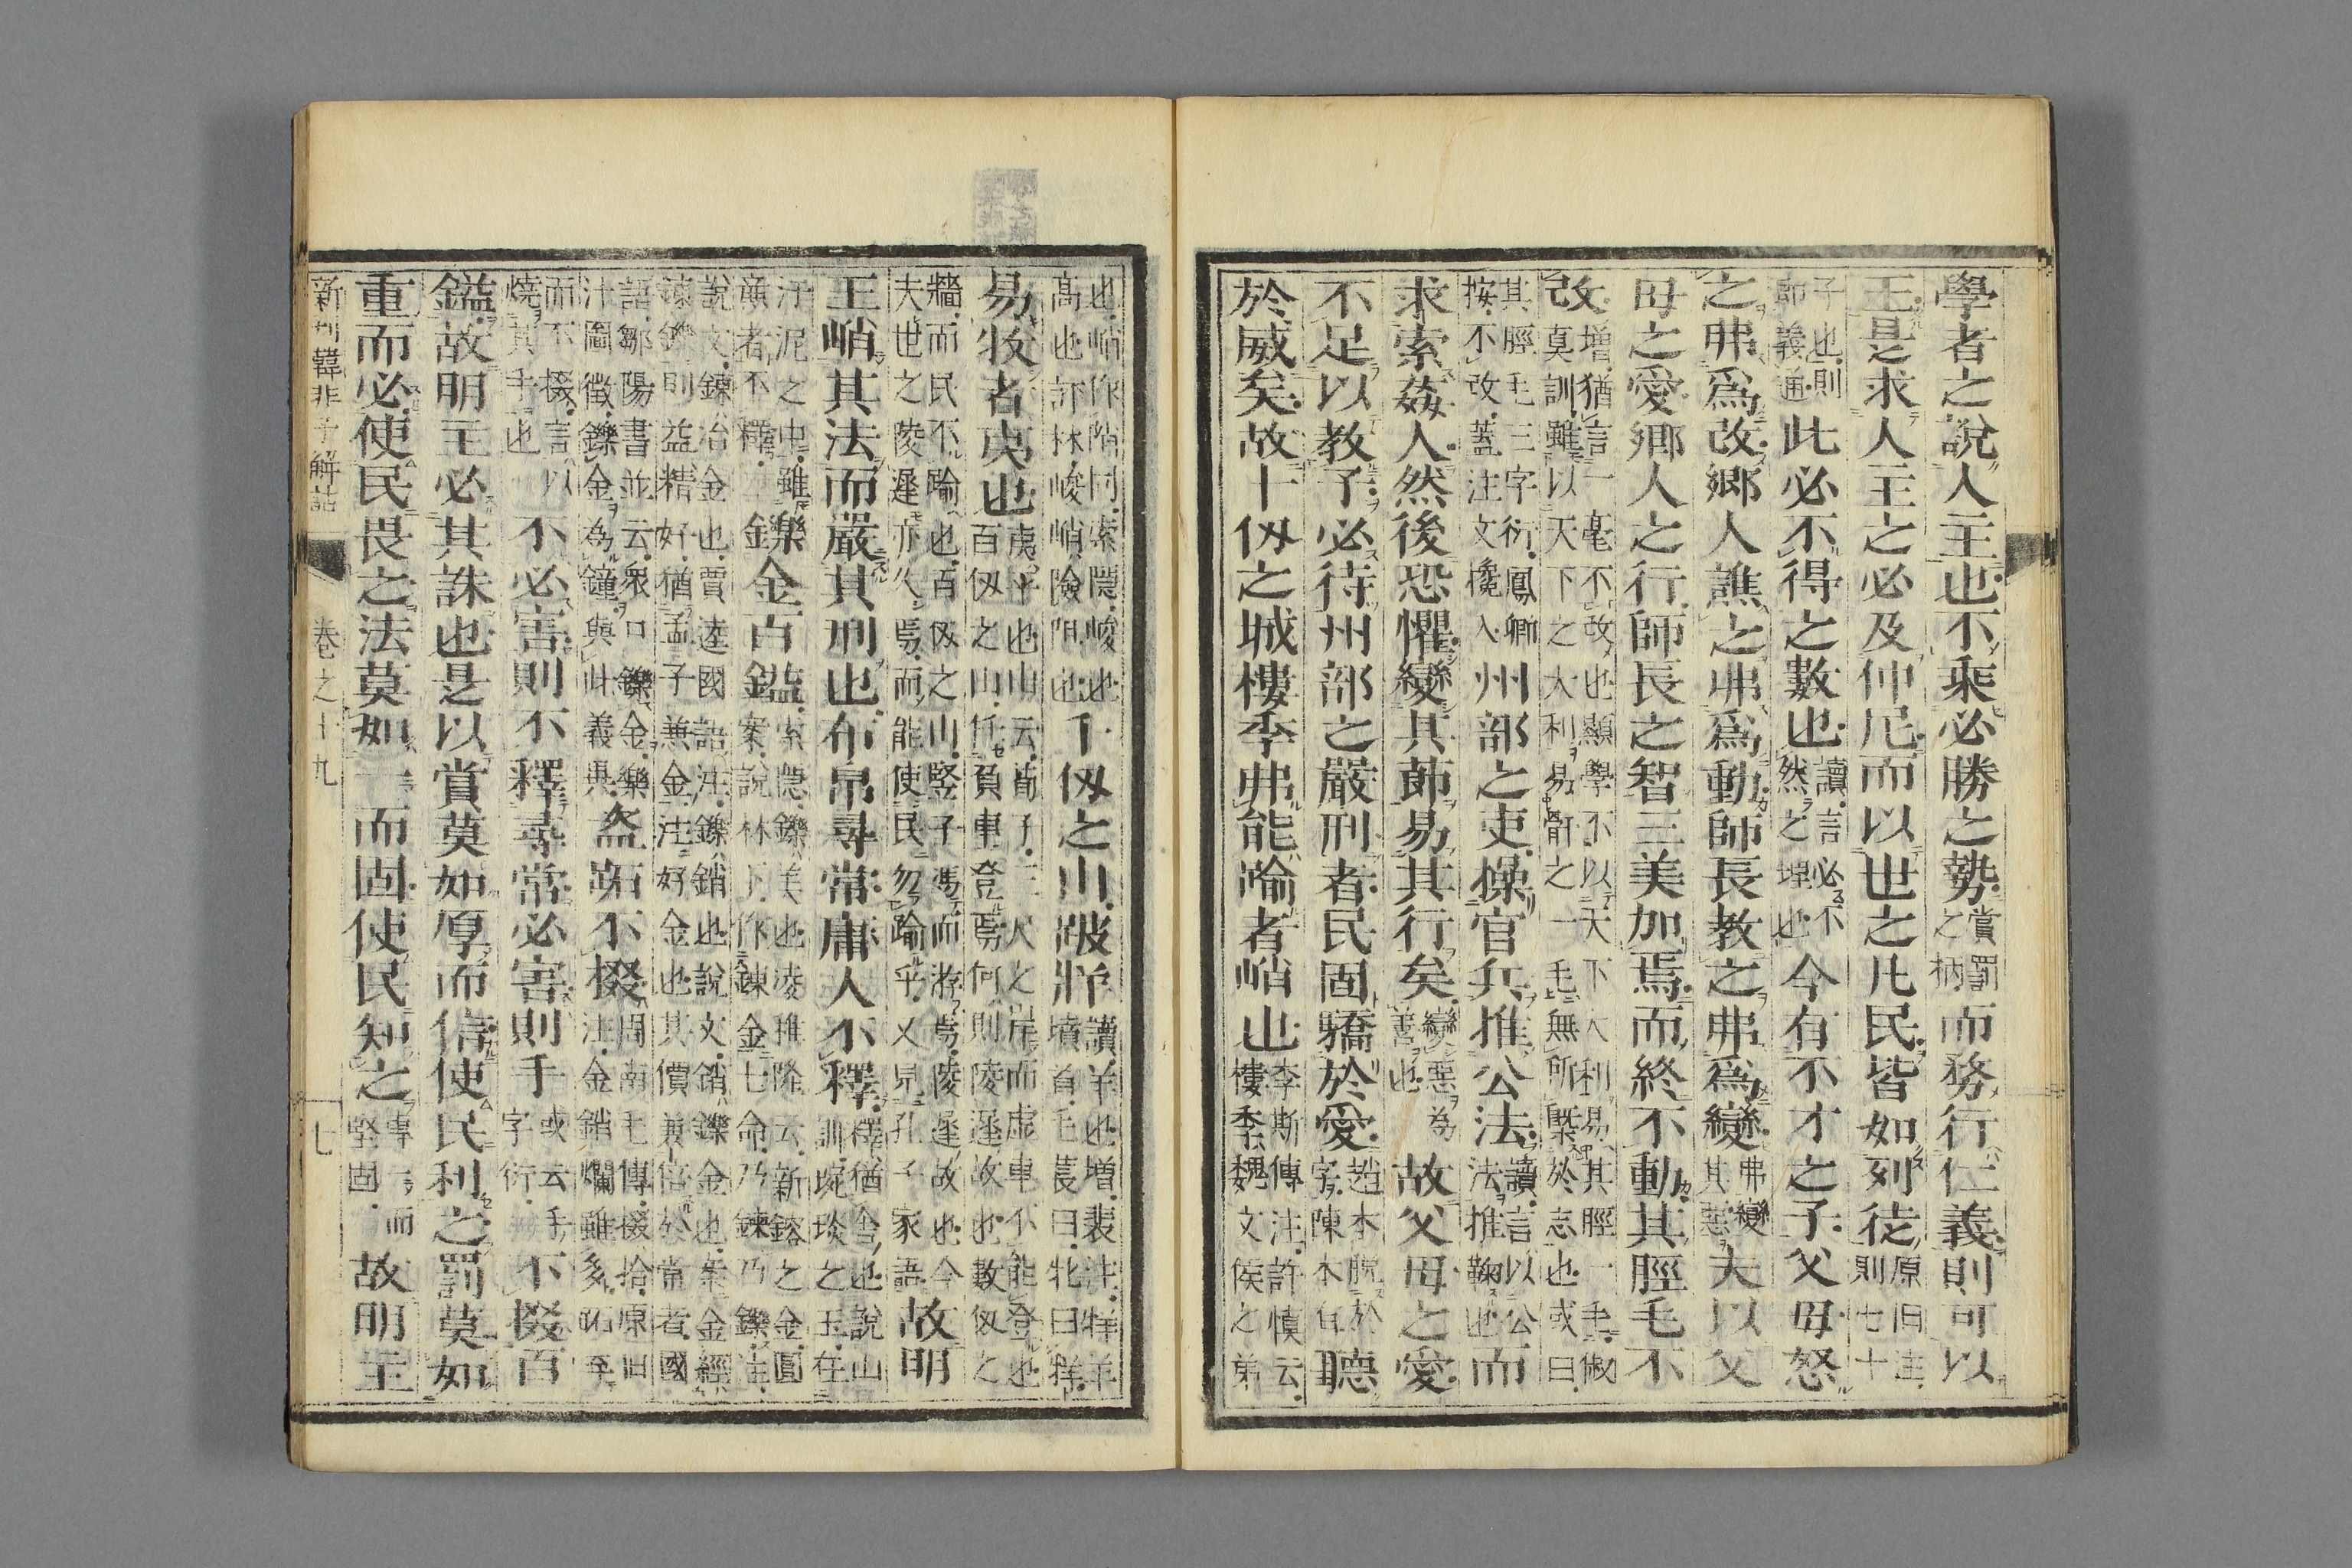 學者之說人主也不乘必勝之勢賞罰之柄而務行仁義則可以
王是求人主之必及仲尼而以世之凡民皆如列徒原旧注則七十
子也則節義通此必不得之數也讀言必不然之理也今有不才之子父母怒
之弗爲改鄉人譙之弗爲動師長教之弗爲變弗變其惡夫以父
母之愛鄉人之行師長之智三美加焉而終不動其脛毛不
改增猶言一毫不改也顯學不以天下大利易其脛一毛俶真訓雖以天下之大利易骭之一毛無所槩於志也或曰
其脛毛三字衍鳳卿按不改蓋注文攙入州部之吏操官兵推公法讀言以公法推鞠也而
求索姦人然後恐懼變其節易其行矣變惡為善也故父母之愛
不足以教子必待州部之嚴刑者民固驕於愛趙本脫於字陳本有聽
於威矣故十仭之城樓季弗能踰者峭也李斯傳注許慎云樓季魏文侯之弟
也峭作陗同索隱峻也高也訴林峻峭險阻也千仭之山跛牂讀羊也增裴注牂羊墳首毛萇曰牝曰牂
易牧者夷也夷平也山云荀子三尺之岸而虛車不能登也百仭之山任負車登焉何則陵遲故也數仭之
牆而民不踰也百仭之山竪子馮而游焉陵遲故也今夫世之陵遲亦久焉而能使民勿踰乎又見孔子家語故明
王峭其法而嚴其刑也布帛尋常庸人不釋釋猶舍也說山訓琬琰之玉在
汙泥之中雖廉者不釋鑠金百鎰索隱鑠美也凌稚隆云新鎔之金圓案說林下作鍊金七命乃鍊乃鑠注
說文鍊冶金也賈逵國語注鑠銷也說文銷鑠金也案金經諫鑠則益精好猶孟子兼金注好金也其價兼倍於常者國
語鄒陽書並云衆口鑠金樂汁圖徵鑠金為鐘與此義異盜跖不掇周南毛傳掇拾原旧注金銷爛雖多跖至
而不掇言以燒其手也不必害則不釋尋常必害則手或云手字衍不掇百
鎰故明主必其誅也是以賞莫如厚而信使民利之罰莫如
重而必使民畏之法莫如一而固使民知之專一而堅固故明主
新刊韓非子解詁 卷之十九 七